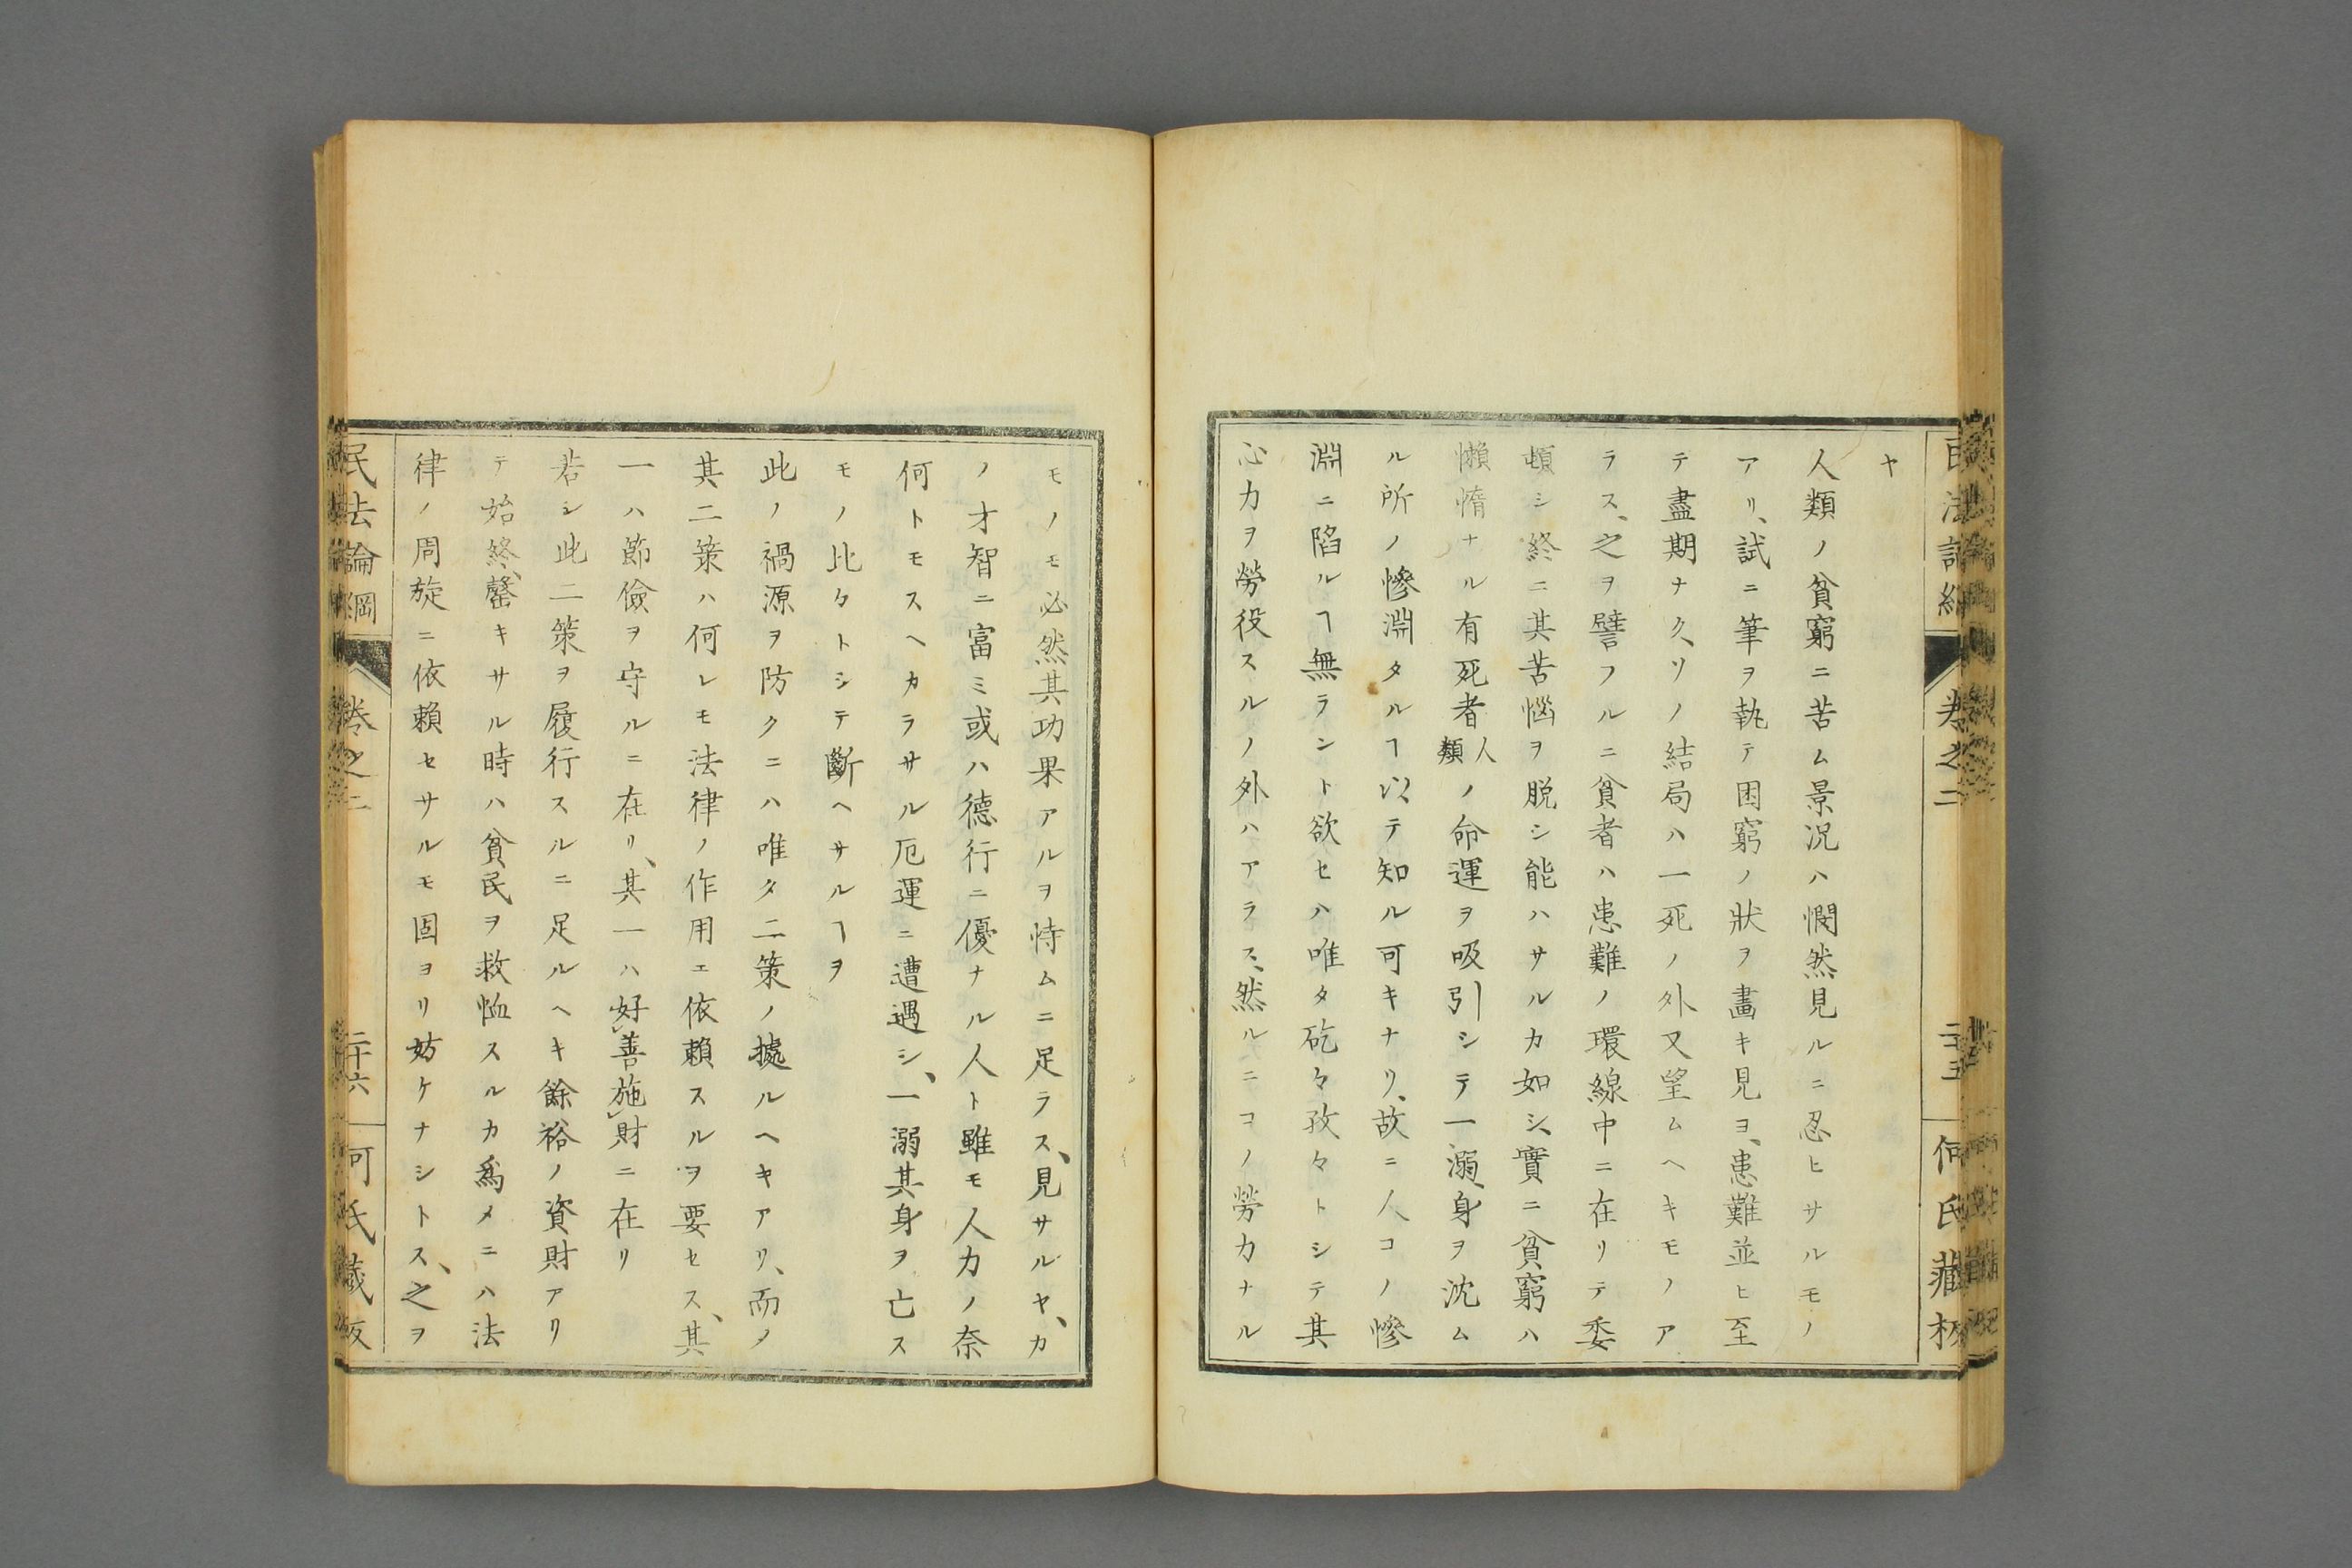 民法論綱
卷之二
二十五
何氏藏板
ヤ
人類ノ貧窮ニ苦ム景況ハ憫然見ルニ忍ヒサルモノ
アリ、試ニ筆ヲ執テ困窮ノ狀ヲ畫キ見ヨ、患難並ヒ至
テ盡期ナク、ソノ結局ハ一死ノ外又望ムヘキモノア
ラス、之ヲ譬フルニ貧者ハ患難ノ環線中ニ在リテ委
頓シ終ニ其苦惱ヲ脱シ能ハサルカ如シ、實ニ貧窮ハ
懶惰ナル有死者人類ノ命運ヲ吸引シテ一溺、身ヲ沈ム
ル所ノ慘淵タルヿ以テ知ル可キナリ、故ニ人コノ慘
淵ニ陷ルヿ無ラント欲セハ唯タ矻々孜々トシテ其
心力ヲ勞役スルノ外ハアラス、然ルニコノ勞力ナル
モノモ必然其功果アルヲ恃ムニ足ラス、見サルヤ、カ
ノ才智ニ富ミ或ハ德行ニ優ナル人ト雖モ人力ノ奈
何トモスヘカラサル厄運ニ遭遇シ、一溺其身ヲ亡ス
モノ比々トシテ斷ヘサルヿヲ
此ノ禍源ヲ防クニハ唯タ二策ノ據ルヘキアリ、而ノ
其二策ハ何レモ法律ノ作用ニ依賴スルヲ要セス、其
一ハ節儉ヲ守ルニ在リ、其一ハ好善施財ニ在リ
若シ此二策ヲ履行スルニ足ルヘキ餘裕ノ資財アリ
テ始終、罄キサル時ハ貧民ヲ救恤スルカ爲メニハ法
律ノ周旋ニ依賴セサルモ固ヨリ妨ケナシトス、之ヲ
民法論綱
卷之二
二十六
何氏藏板